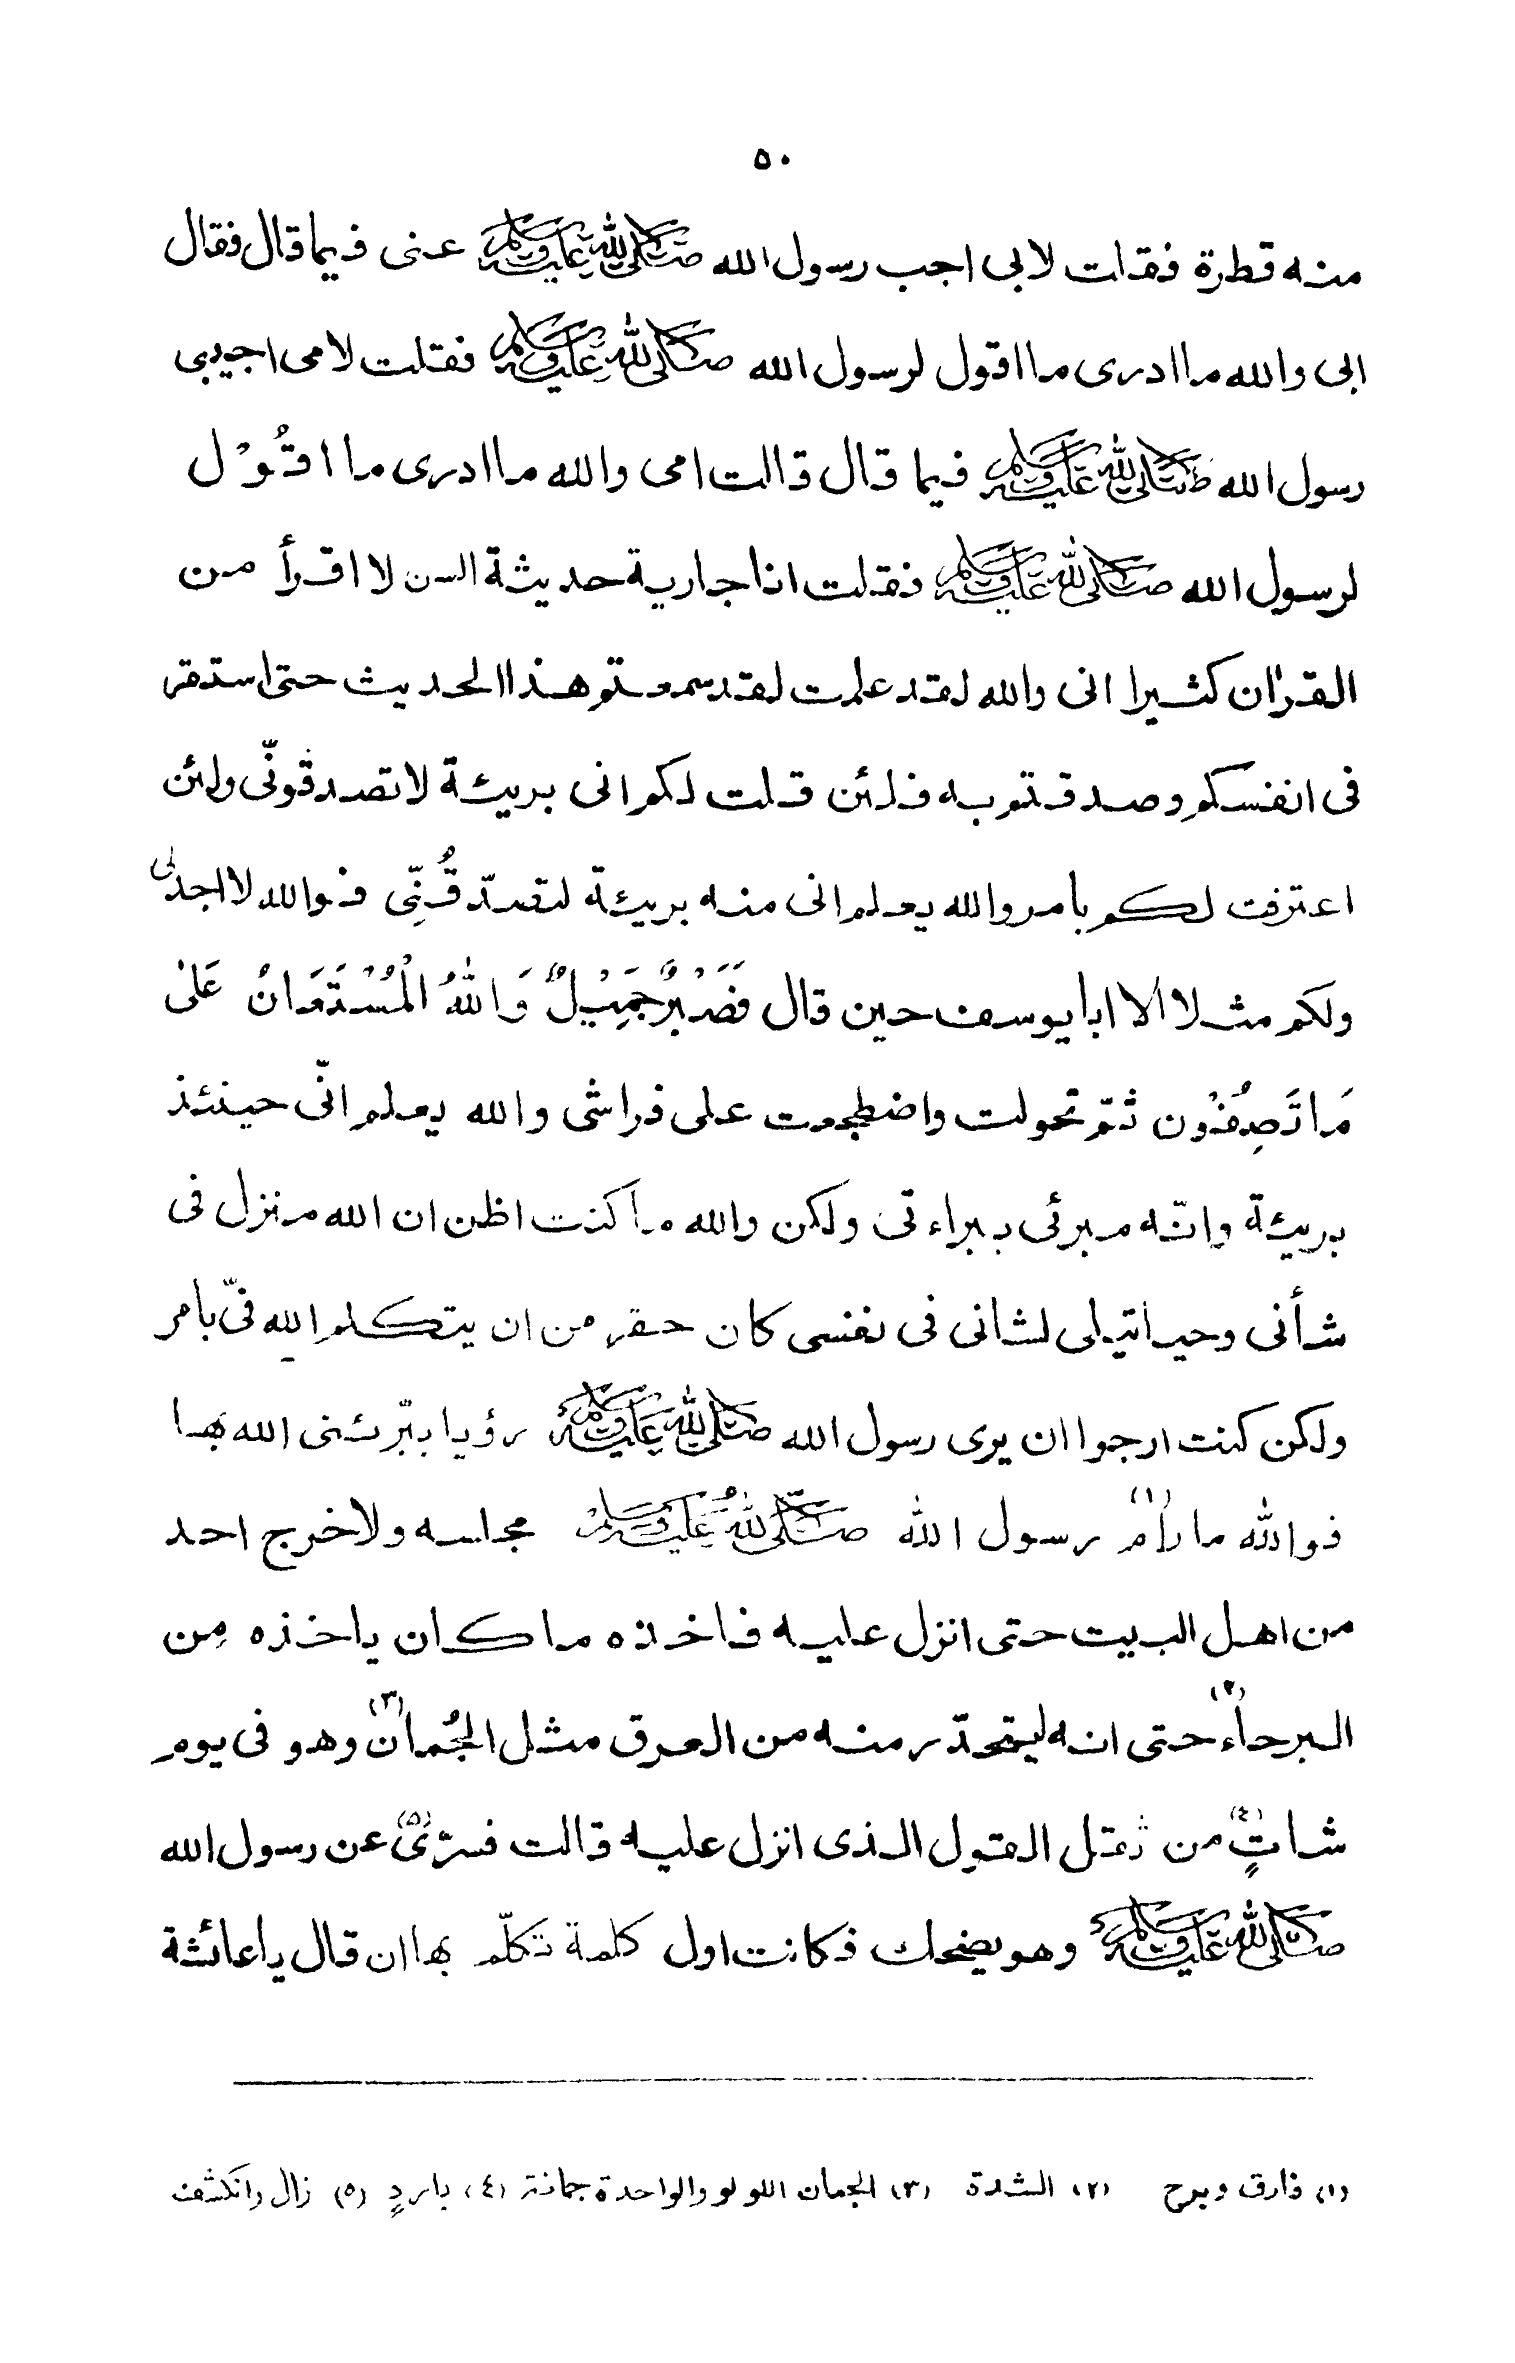 ٥٠
منه قطرة فقلت لابى اجب رسول الله ﷺ عنى فيما قال فقال
ابى والله ما ادرى ما اقول لرسول الله ﷺ فقلت لامى اجيبى
رسول الله ﷺ فيما قال قالت امى والله ما ادرى ما اقُوْل
لرسول الله ﷺ فقلت انا جارية حديثة السن لا اقرأ من
القرٰان كثيرا انى والله لقد علمت لقد سمعتم هذا الحديث حتى استقر
فى انفسكم وصدقتم به فلئن قلت لكم انى بريئة لا تصدقونّى ولئن
اعترفت لكم بامر والله يعلم انى منه بريئة لتصدّقُنِّى فوالله لا اجد لى
ولكم مثلا الا ابا يوسف حين قال فَصَبْرٌ جَمِيْلٌ وَاللهُ الْمُسْتَعَانُ عَلىٰ
مَا تَصِفُوْن ثمّ تحولت واضطجعت على فراشى والله يعلم انّى حينئذ
بريئة وانّه مبرئى ببراءتى ولكن والله ما كنت اظن ان الله منزل فى
شأنى وحيا يتلى لشانى فى نفسى كان حقر من ان يتكلم الله فىّ بامر
ولكن كنت ارجوا ان يرى رسول الله ﷺ رؤيا يبّرئنى الله بها
فوالله ما رام (١) رسول الله ﷺ مجلسه ولا خرج احد
من اهل البيت حتى انزل عليه فاخذه ما كان ياخذه مِن
البرحاء (٢) حتى انه ليتحدّر منه من العرق مثل الجُمان (٣) وهو فى يوم
شاتٍ (٤) من ثقل القول الذى انزل عليه قالت فسرّى (٥) عن رسول الله
ﷺ وهو يضحك فكانت اول كلمة تكلّم بها ان قال يا عائشة
(١) فارق وبرح (٢) الشدة (٣) الجمان اللولو والواحدة جمانة (٤) باردٍ (٥) زال وانكشف